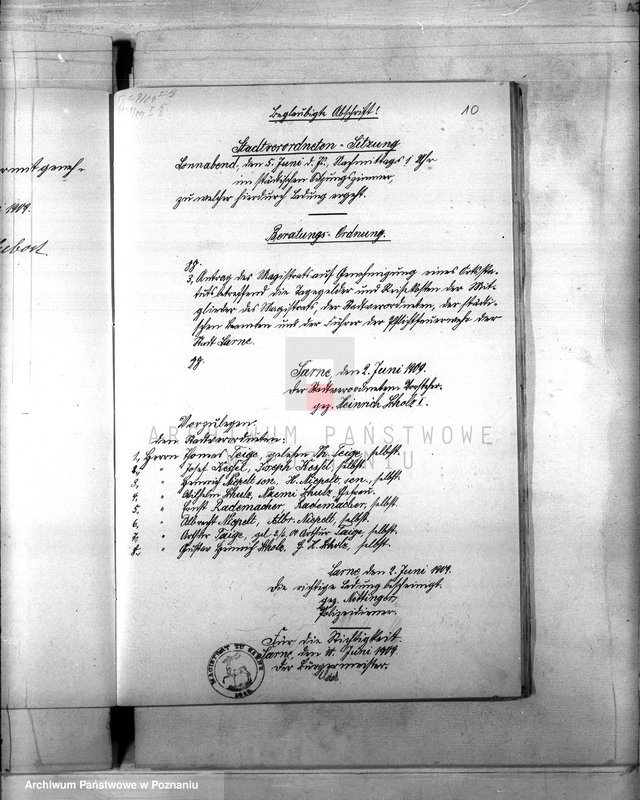 rmt geneh-
1909.
Beglaubigte Abschrift!
10
Stadtverordneten-Sitzung
Sonnabend, den 5. Juni d. Js., Nachmittags 1 Uhr
im städtischen Sitzungszimmer,
zu welcher hierdurch Ladung ergeht.
Beratungs-Ordnung.
pp.
3, Antrag des Magistrats auf Genehmigung eines Ortssta-
tuts betreffend die Tagegelder und Reisekosten der Mit-
glieder des Magistrats, der Stadtverordneten, der städti-
schen Beamten und der Führer der Pflichtfeuerwehr der
Stadt Sarne.
pp.
Sarne, den 2. Juni 1909.
Der Stadtverordneten Vorsteher.
gez. Heinrich Scholz I.
Vorzulegen
den Stadtverordneten:
1, Herrn Thomas Teige, gelesen Th. Teige, selbst.
2, " Josef Kessel, Joseph Kessel, selbst.
3, " Heinrich Niepelt sen, H. Niepelt, sen., selbst.
4, " Wilhelm Schulz, Naemi Schulz, Ehefrau.
5, " Ernst Rademacher, Rademacher, selbst.
6, " Albrecht Niepelt, Albr. Niepelt, selbst.
7, " Arthur Taige, gel. 2/6. 09 Arthur Taige, selbst.
8, " Gustav Heinrich Scholz, G. H. Scholz, selbst.
Sarne, den 2. Juni 1909.
Die richtige Ladung bescheinigt.
gez. Nöttinger,
Polizeidiener.
Für die Richtigkeit
Sarne, den 11. Juni 1909
Der Bürgermeister.
MAGISTRAT ZU SARNE
ARCHIWUM PAŃSTWOWE
W POZNANIU
Archiwum Państwowe w Poznaniu